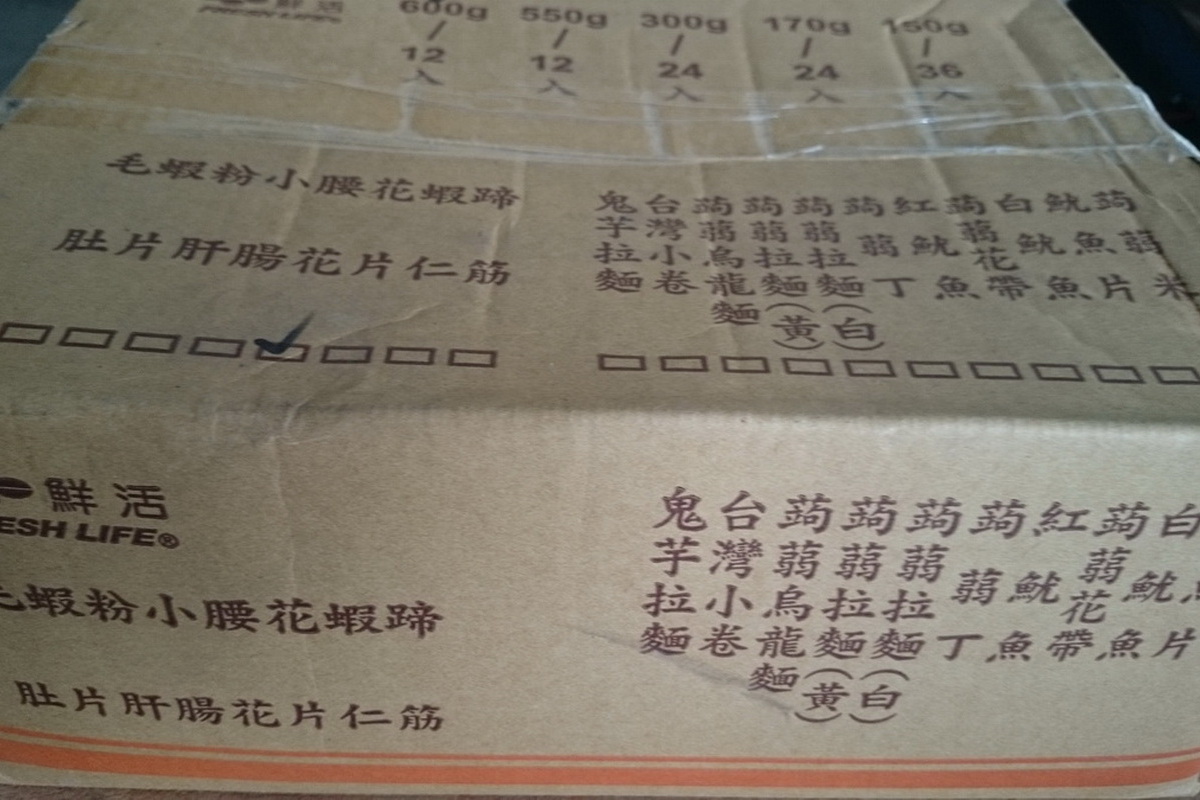 鮮活
FRESH LIFE
600g/12入
550g/12入
300g/24入
170g/24入
150g/36入
毛肚
蝦片
粉肝
小腸
腰花
花片
蝦仁
蹄筋
鬼芋拉麵
台灣小卷
蒟蒻烏龍麵
蒟蒻拉麵(黃)
蒟蒻拉麵(白)
蒟蒻丁
紅魷魚
蒟蒻花帶
白魷魚
魷魚片
蒟蒻米
鮮活
ESH LIFE®
毛肚
蝦片
粉肝
小腸
腰花
花片
蝦仁
蹄筋
鬼芋拉麵
台灣小卷
蒟蒻烏龍麵
蒟蒻拉麵(黃)
蒟蒻拉麵(白)
蒟蒻丁
紅魷魚
蒟蒻花帶
白魷魚
片